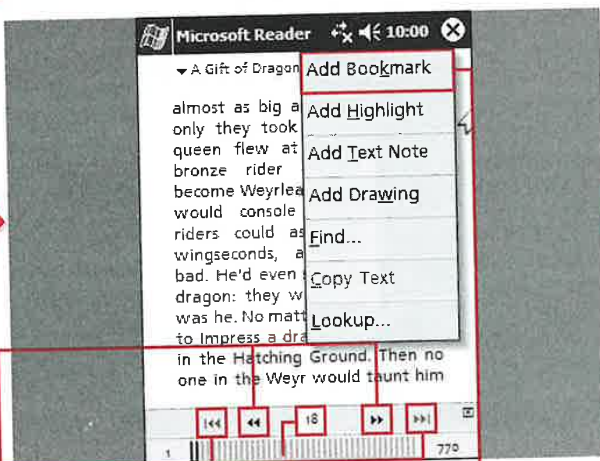 Microsoft Reader 10:00
A Gift of Dragon
Add Bookmark
Add Highlight
Add Text Note
Add Drawing
Find...
Copy Text
Lookup...
almost as big a
only they took
queen flew at
bronze rider
become Weyrlea
would console
riders could as
wingseconds, a
bad. He'd even
dragon: they w
was he. No matt
to Impress a dra
in the Hatching Ground. Then no
one in the Weyr would taunt him
18
1 770